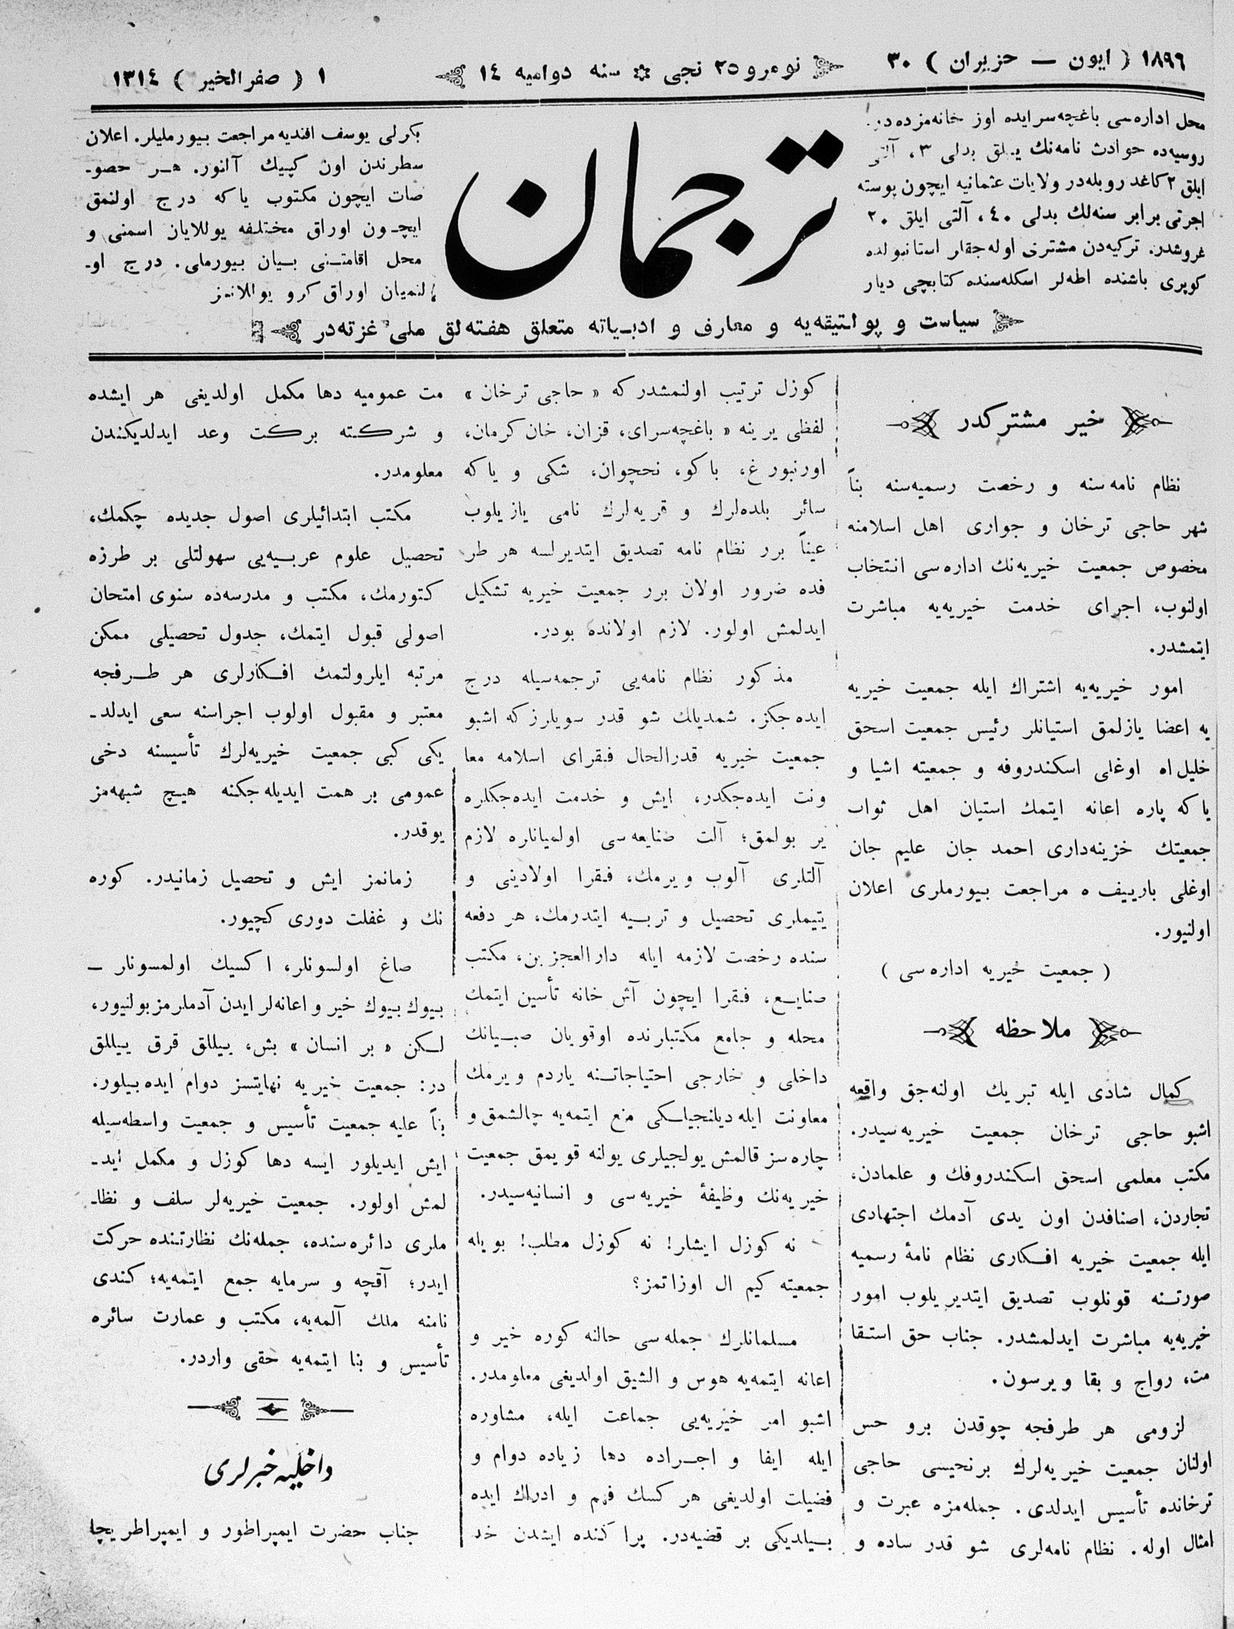 ١٨٩٦ ( ایون — حزیران ) ٣٠
نومرو ٢٥ نجی ✲ سنه دوامیه ١٤
١ ( صفر الخیر ) ١٣١٤
محل اداره‌سی باغچه‌سرایده اوز خانه‌مزده‌در.
روسیه‌ده حوادث نامه‌نك ییلق بدلی ٣، آلتی
ایلق ٢ كاغد روبله‌در ولایات عثمانیه ایچون پوسته
اجرتی برابر سنه‌لك بدلی ٤٠، آلتی ایلق ٢٠
غروشدر. تركیه‌دن مشتری اوله‌جقلر استانبولده
كوپری باشنده اطه‌لر اسكله‌سنده كتابچی دیار
ترجمان
بكرلی یوسف افندیه مراجعت بیورملیلر. اعلان
سطرندن اون كپیك آلنور. هر حصو‌ـ
صات ایچون مكتوب یاكه درج اولنمق
ایچون اوراق مختلفه یوللایان اسمنی و
محل اقامتنی بیان بیورملی. درج او‌ـ
لنمیان اوراق كرو یوللانمز
سیاست و پولتیقه‌یه و معارف و ادبیاته متعلق هفته‌لق ملی غزته‌در
خیر مشتركدر
نظام نامه‌سنه و رخصت رسمیه‌سنه بنأً
شهر حاجی ترخان و جواری اهل اسلامنه
مخصوص جمعیت خیریه‌نك اداره‌سی انتخاب
اولنوب، اجرای خدمت خیریه‌یه مباشرت
ایتمشدر.
امور خیریه‌یه اشتراك ایله جمعیت خیریه
یه اعضا یازلمق استیانلر رئیس جمعیت اسحق
خلیل‌اه اوغلی اسكندروفه و جمعیته اشیا و
یاكه پاره اعانه ایتمك استیان اهل ثواب
جمعیتك خزینه‌داری احمد جان علیم جان
اوغلی باریيف ه مراجعت بیورملری اعلان
اولنیور.
( جمعیت خیریه اداره‌سی )
ملاحظه
كمال شادی ایله تبریك اولنه‌جق واقعه
اشبو حاجی ترخان جمعیت خیریه‌سیدر.
مكتب معلمی اسحق اسكندروفك و علمادن،
تجاردن، اصنافدن اون یدی آدمك اجتهادی
ایله جمعیت خیریه افكاری نظام نامهٔ رسمیه
صورتنه قونلوب تصدیق ایتدیریلوب امور
خیریه‌یه مباشرت ایدلمشدر. جناب حق استقا
مت، رواج و بقا ویرسون.
لزومی هر طرفجه چوقدن برو حس
اولنان جمعیت خیریه‌لرك برنجیسی حاجی
ترخانده تأسیس ایدلدی. جمله‌مزه عبرت و
امثال اوله. نظام نامه‌لری شو قدر ساده و
كوزل ترتیب اولنمشدركه « حاجی ترخان »
لفظی یرینه « باغچه‌سرای، قزان، خان كرمان،
اورنبورغ، باكو، نخچوان، شكی و یاكه
سائر بلده‌لرك و قریه‌لرك نامی یازیلوب
عیناً برر نظام نامه تصدیق ایتدیرلسه هر طر
فده ضرور اولان برر جمعیت خیریه تشكیل
ایدلمش اولور. لازم اولانده بودر.
مذكور نظام نامه‌یی ترجمه‌سیله درج
ایده‌جكز. شمدیلك شو قدر سویلرزكه اشبو
جمعیت خیریه قدرالحال فقرای اسلامه معا
ونت ایده‌جكدر، ایش و خدمت ایده‌جكلره
یر بولمق؛ آلت صنایعه‌سی اولمیانلره لازم
آلتلری آلوب ویرمك، فقرا اولادینی و
یتیملری تحصیل و تربیه ایتدرمك، هر دفعه
سنده رخصت لازمه ایله دارالعجزین، مكتب
صنایع، فقرا ایچون آش خانه تأسین ایتمك
محله و جامع مكتبلرنده اوقویان صبیانك
داخلی و خارجی احتیاجاتنه یاردم ویرمك
معاونت ایله دیلنجیلكی منع ایتمه‌یه چالشمق و
چاره‌سز قالمش یولجیلری یولنه قویمق جمعیت
خیریه‌نك وظیفهٔ خیریه‌سی و انسانیه‌سیدر.
نه كوزل ایشلر! نه كوزل مطلب! بویله
جمعیته كیم ال اوزاتمز؟
مسلمانلرك جمله‌سی حالنه كوره خیر و
اعانه ایتمه‌یه هوس و الشیق اولدیغی معلومدر.
اشبو امر خیریه‌یی جماعت ایله، مشاوره
ایله ایفا و اجراده دها زیاده دوام و
فضیلت اولدیغی هر كسك فهم و ادراك ایده
بیلدیكی بر قضیه‌در. پراكنده ایشدن خد
مت عمومیه دها مكمل اولدیغی هر ایشده
و شركته بركت وعد ایدلدیكندن
معلومدر.
مكتب ابتدائیلری اصول جدیده چكمك،
تحصیل علوم عربیه‌یی سهولتلی بر طرزه
كتورمك، مكتب و مدرسه‌ده سنوی امتحان
اصولی قبول ایتمك، جدول تحصیلی ممكن
مرتبه ایلرولتمك افكارلری هر طرفجه
معتبر و مقبول اولوب اجراسنه سعی ایدلد‌ـ
یكی كبی جمعیت خیریه‌لرك تأسیسنه دخی
عمومی بر همت ایدیله‌جكنه هیچ شبهه‌مز
یوقدر.
زمانمز ایش و تحصیل زمانیدر. كوره
نك و غفلت دوری كچیور.
صاغ اولسونلر، اكسیك اولمسونلر —
بیوك بیوك خیر و اعانه‌لر ایدن آدملرمز بولنیور،
لكن « بر انسان » بش، ییللق قرق ییللق
در: جمعیت خیریه نهایتسز دوام ایده‌بیلور.
بنأ علیه جمعیت تأسیس و جمعیت واسطه‌سیله
ایش ایدیلور ایسه دها كوزل و مكمل اید‌ـ
لمش اولور. جمعیت خیریه‌لر سلف و نظا‌ـ
ملری دائره‌سنده، جمله‌نك نظارتنده حركت
ایدر؛ آقچه و سرمایه جمع ایتمه‌یه؛ كندی
نامنه ملك آلمه‌یه، مكتب و عمارت سائره
تأسیس و بنا ایتمه‌یه حقی واردر.
داخلیه خبرلری
جناب حضرت ایمپراطور و ایمپراطریچا